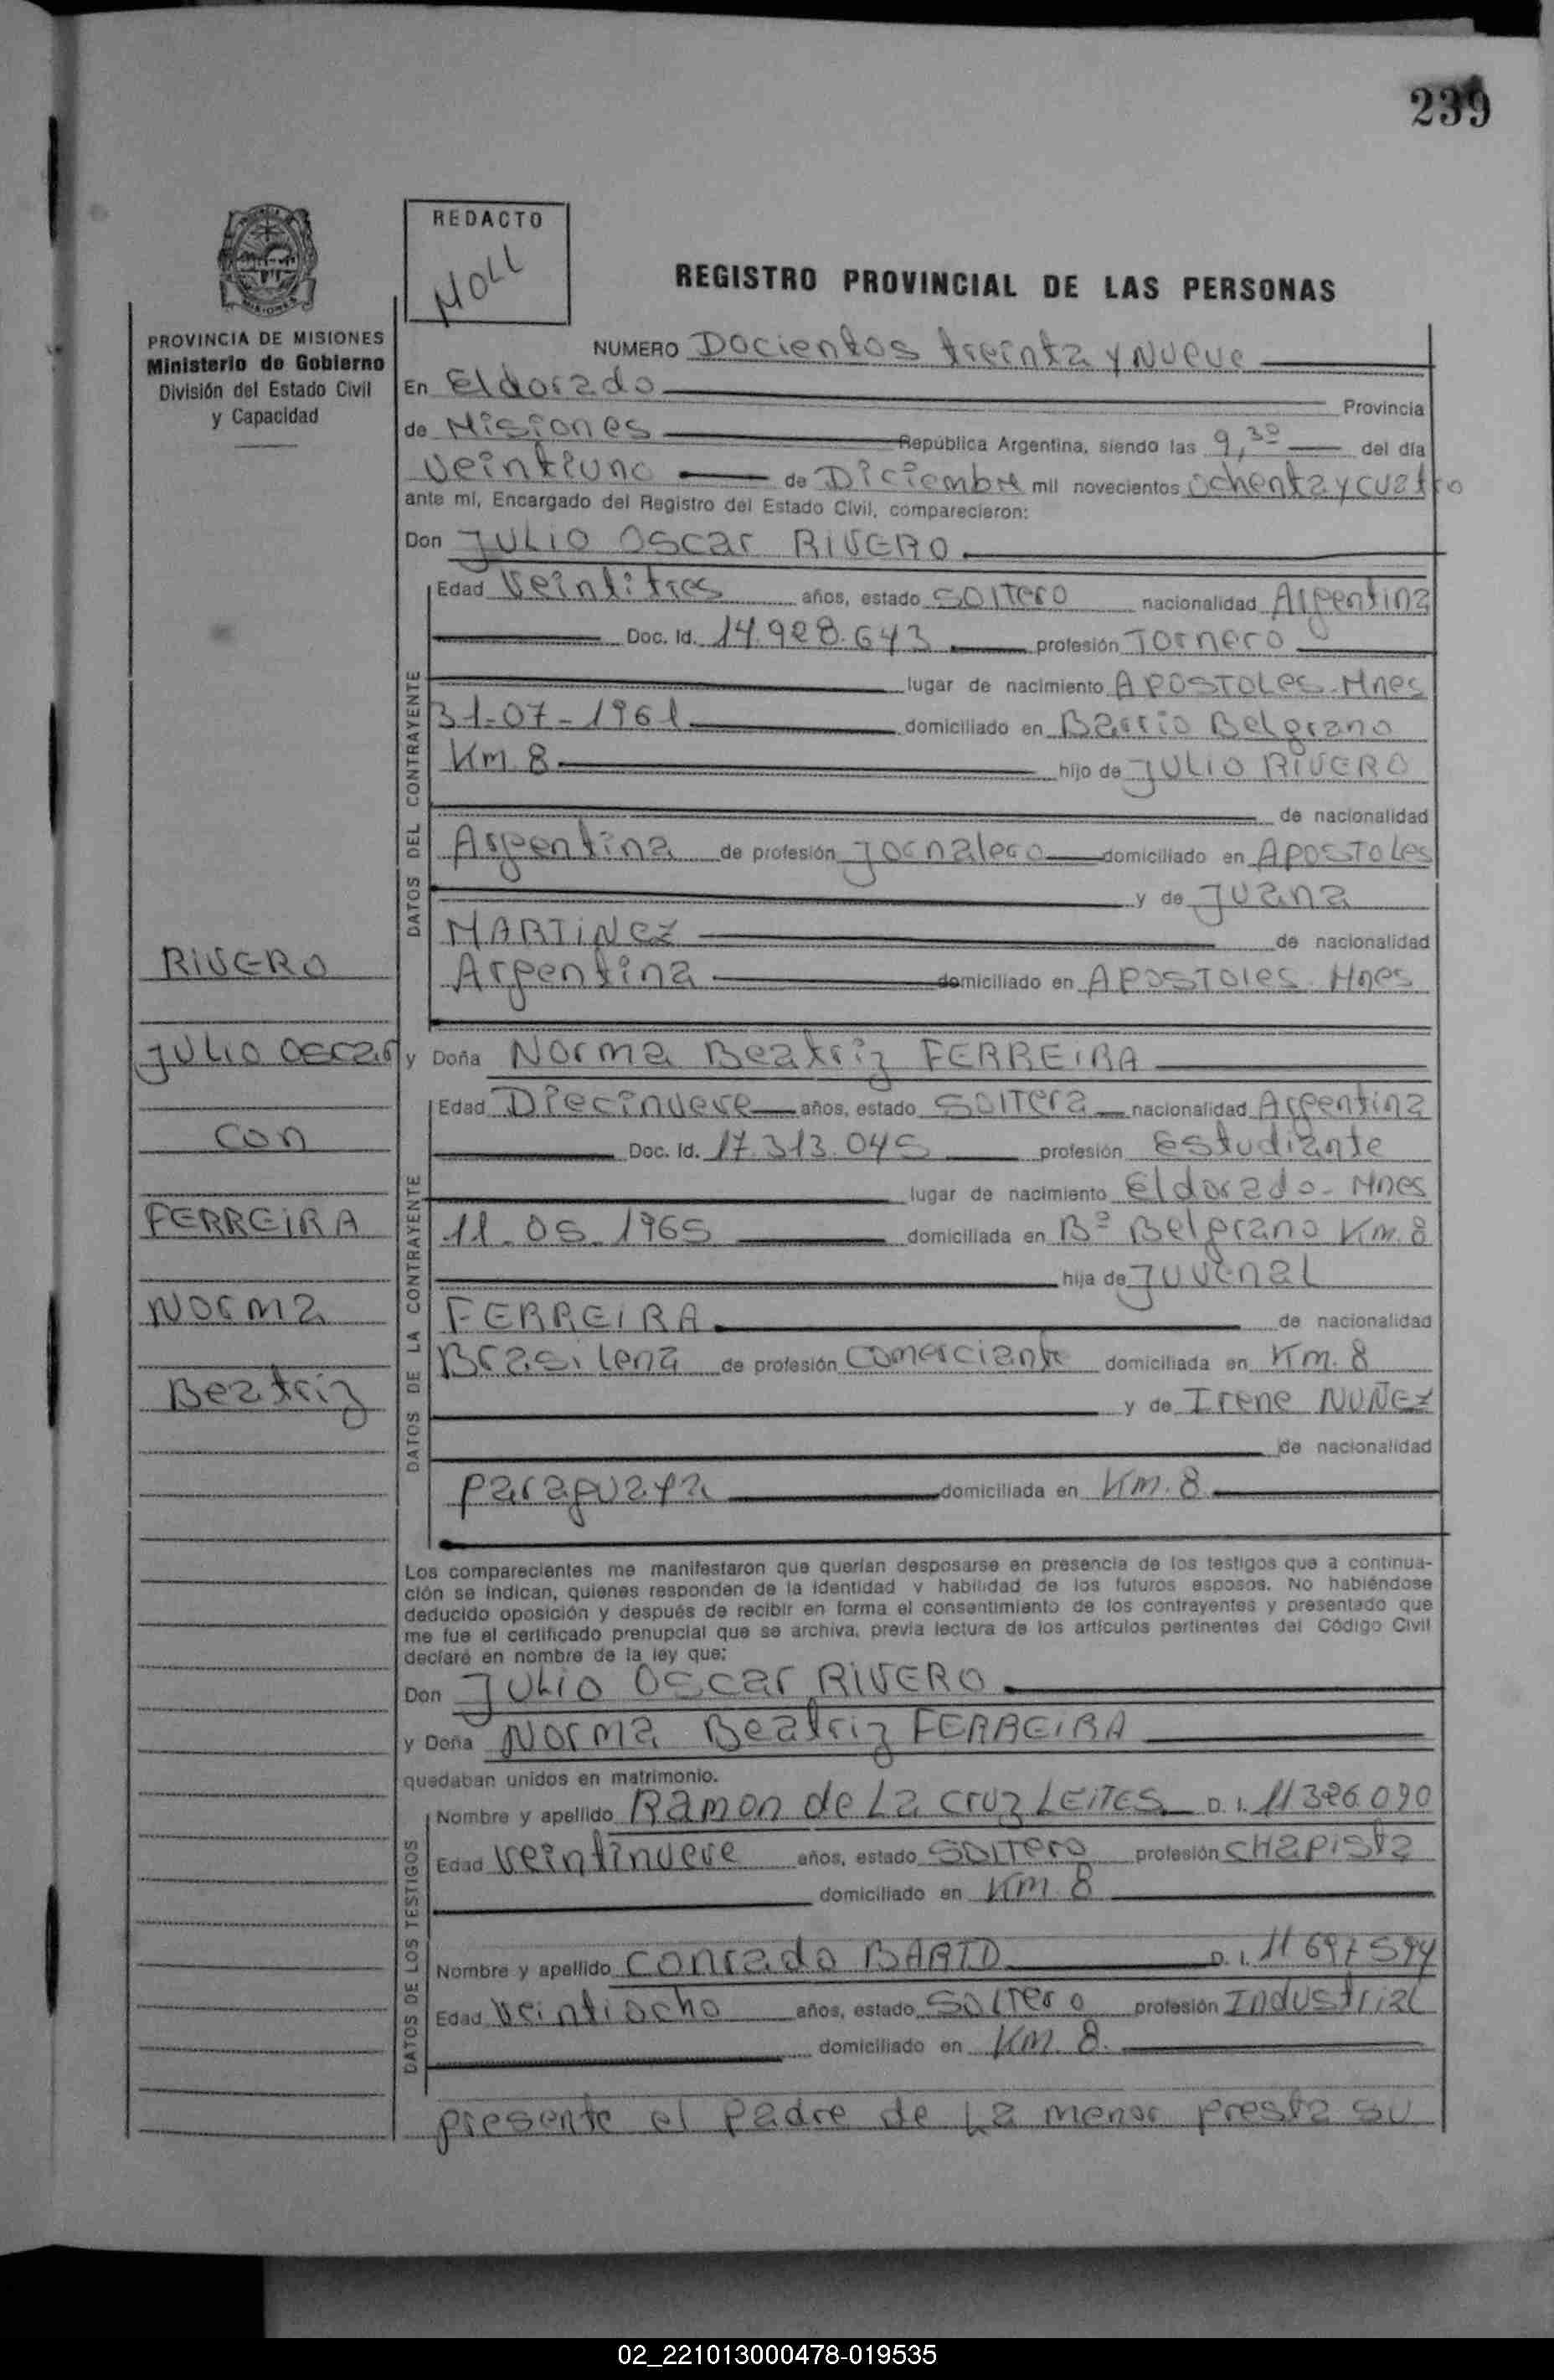 239
REDACTO
MOLL
REGISTRO PROVINCIAL DE LAS PERSONAS
PROVINCIA DE MISIONES
Ministerio de Gobierno
División del Estado Civil
y Capacidad
NUMERO Docientos treinta y Nueve
En Eldorado Provincia
de Misiones República Argentina, siendo las 9,30 del día
veintiuno de Diciembre mil novecientos ochenta y cuatro
ante mí, Encargado del Registro del Estado Civil, comparecieron:
Don JULIO OSCAR RIVERO
DATOS DEL CONTRAYENTE
Edad Veintitres años, estado SOLTERO nacionalidad Argentina
Doc. Id. 14.928.643 profesión TORNERO
lugar de nacimiento APOSTOLES-Mnes
31-07-1961 domiciliado en Barrio Belgrano
Km 8 hijo de JULIO RIVERO
de nacionalidad
Argentina de profesión Jornalero domiciliado en APOSTOLES
y de JUANA
MARTINEZ de nacionalidad
Argentina domiciliado en APOSTOLES. Mnes
RIVERO
JULIO OSCAR
con
FERREIRA
NORMA
Beatriz
y Doña Norma Beatriz FERREIRA
DATOS DE LA CONTRAYENTE
Edad Diecinueve años, estado SOLTERA nacionalidad Argentina
Doc. Id. 17.313.045 profesión Estudiante
lugar de nacimiento Eldorado-Mnes
11-05-1965 domiciliada en Bº Belgrano Km. 8
hija de JUVENAL
FERREIRA de nacionalidad
Brasilena de profesión Comerciante domiciliada en Km. 8
y de Irene NUÑEZ
de nacionalidad
paraguaya domiciliada en Km. 8
Los comparecientes me manifestaron que querían desposarse en presencia de los testigos que a continua-
ción se indican, quienes responden de la identidad y habilidad de los futuros esposos. No habiéndose
deducido oposición y después de recibir en forma el consentimiento de los contrayentes y presentado que
me fue el certificado prenupcial que se archiva, previa lectura de los artículos pertinentes del Código Civil
declaré en nombre de la ley que:
Don JULIO OSCAR RIVERO
y Doña NORMA Beatriz FERREIRA
quedaban unidos en matrimonio.
DATOS DE LOS TESTIGOS
Nombre y apellido Ramon de La Cruz LEITES D. I. 11326.090
Edad veintinueve años, estado SOLTERO profesión CHapista
domiciliado en Km. 8
Nombre y apellido Conrado D. I. 11697594
Edad Veintiocho años, estado SOLTERO profesión Industrial
domiciliado en Km. 8.
presente el padre de La menor presta su
02_221013000478-019535